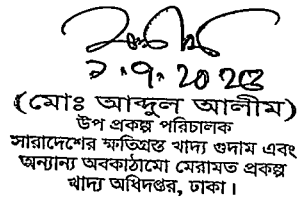 (মোঃ আব্দুল আলীম)
উপ প্রকল্প পরিচালক
সারাদেশের ক্ষতিগ্রস্ত খাদ্য গুদাম এবং
অন্যান্য অবকাঠামো মেরামত প্রকল্প
খাদ্য অধিদপ্তর, ঢাকা।